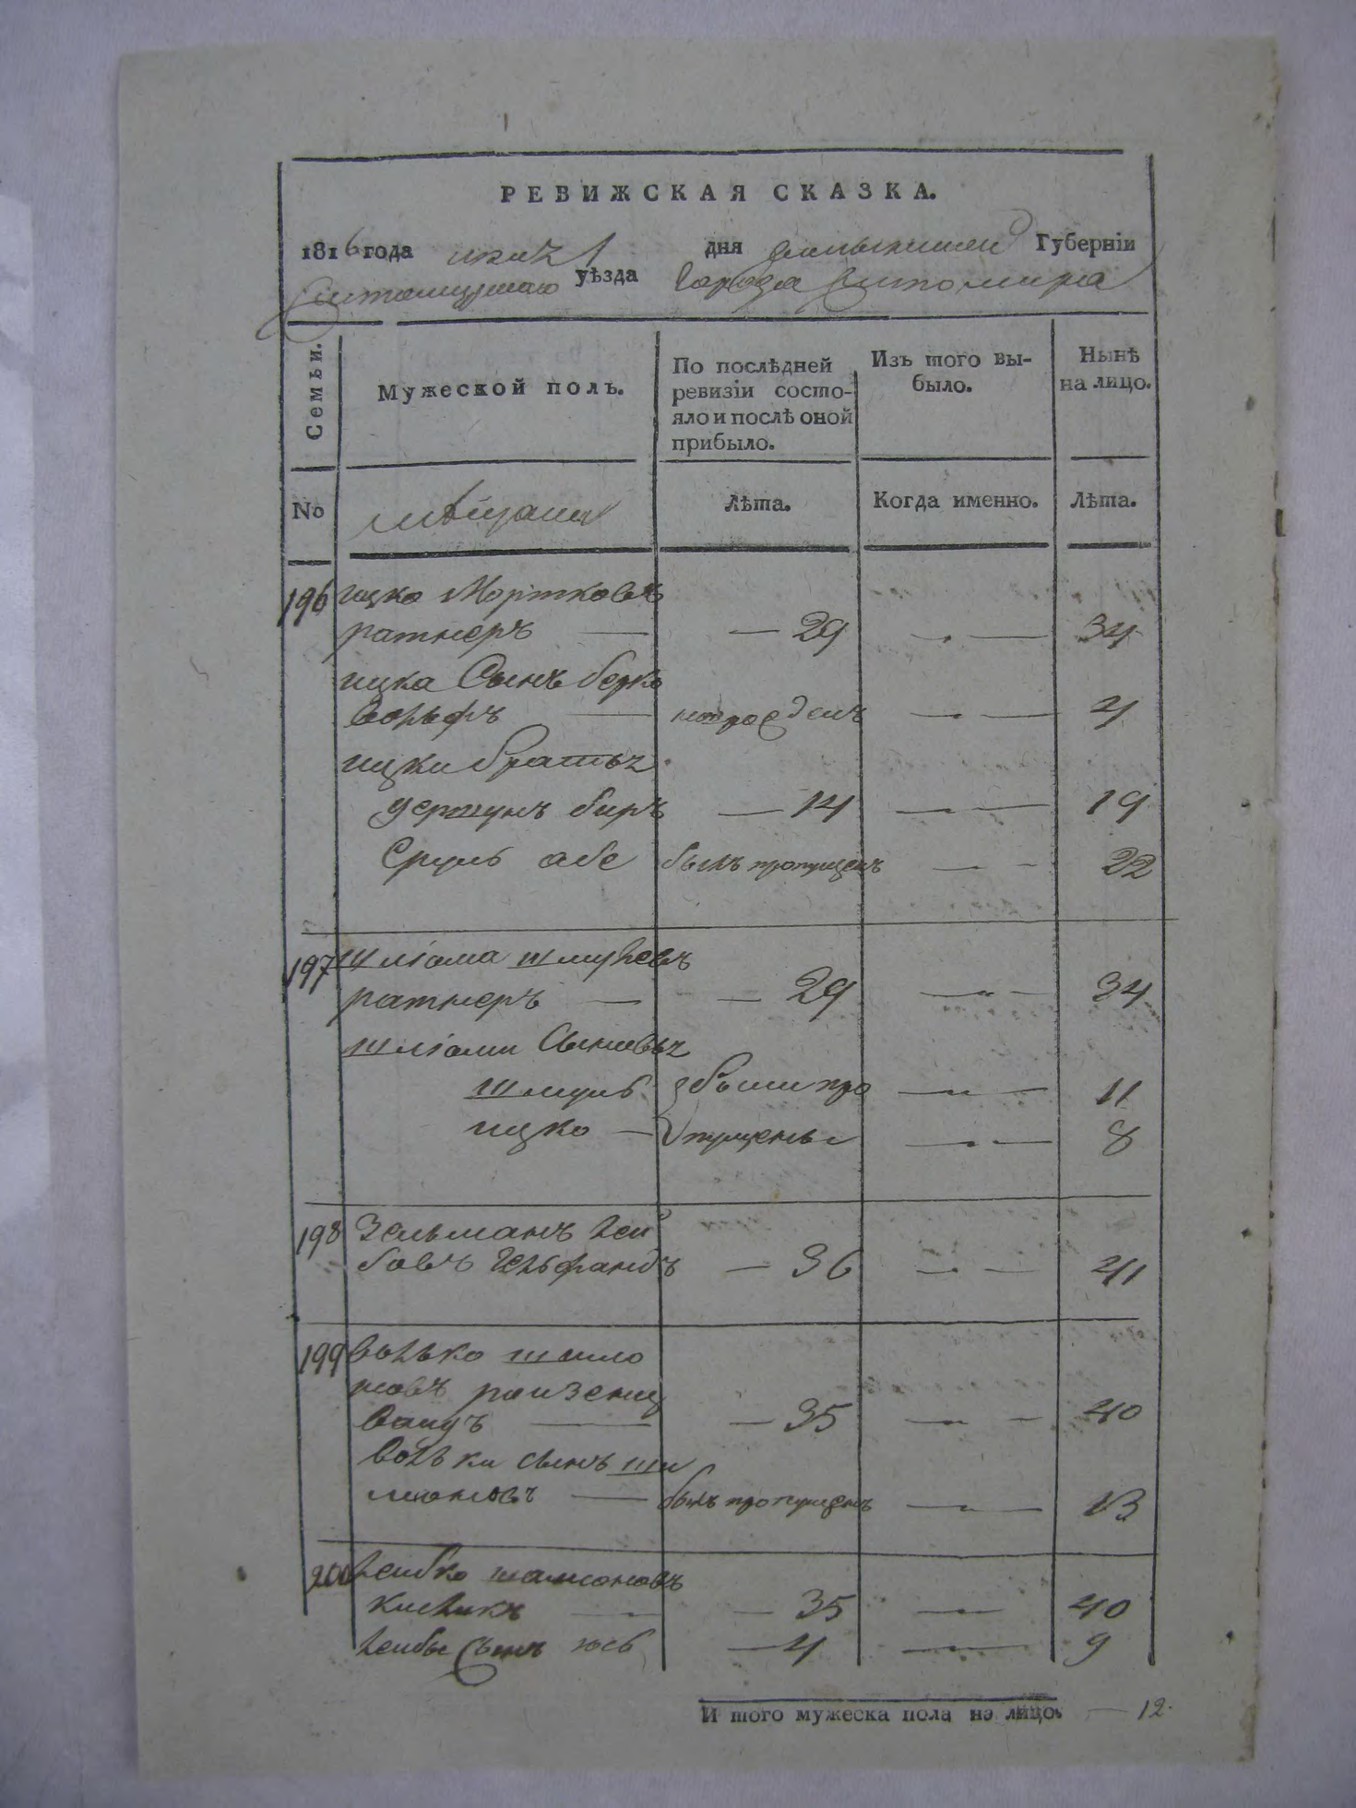 РЕВИЖСКАЯ СКАЗКА.
1816 года маія 1 дня Волынской Губерніи
Житомирскаго уѣзда Города Житомира
Семьи.
Мужеской полъ.
По послѣдней ревизіи состояло и послѣ оной прибыло.
Изъ того выбыло.
Нынѣ на лицо.
No
мѣщане
Лѣта.
Когда именно.
Лѣта.
196 ицко Мортковъ
ратнеръ — — 29 — 34
ицка Сынъ берко
Вольфъ — новорожденъ — 4
ицки братья
Гершунъ беръ — 14 — 19
Сруль абе былъ пропущенъ — 22
197 Шліома шмулевъ
ратнеръ — — 29 — 34
шліоми Сыновья
шмуль были про — 11
ицко — пущены — 8
198 Зельманъ Лей
бовъ Гельфандъ — 36 — 41
199 Волько шмило
новъ розенц
вайгъ — — 35 — 40
Волька сынъ ши
моновъ — былъ пропущенъ — 13
200 Лейбко шамсоновъ
— — 35 — 40
Лейбы Сынъ іосъ — 4 — 9
И того мужеска пола на лицо. — 12.